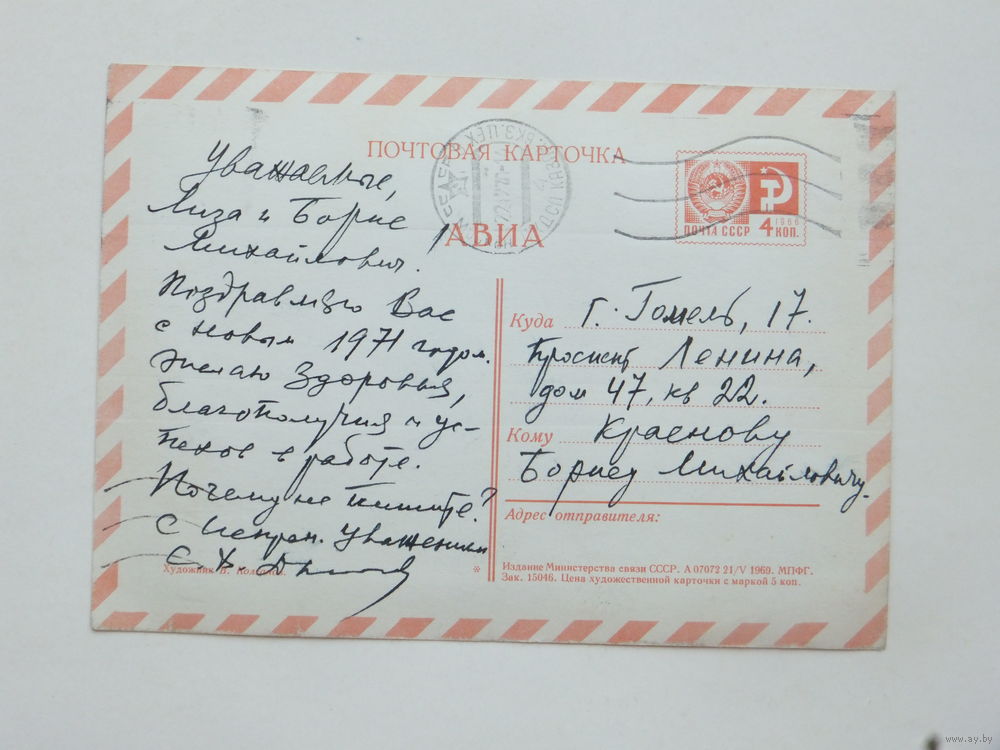 ПОЧТОВАЯ КАРТОЧКА
АВИА
ПОЧТА СССР 4 КОП.
1966
Уважаемые,
Лиза и Борис
Михайлович.
Поздравляю Вас
с новым 1971 годом.
Желаю Здоровья,
благополучия и ус-
пехов в работе.
Почему не пишите?
с Искрен. Уважением
Куда г. Гомель, 17.
Проспект Ленина,
дом 47, кв 22.
Кому Краснову
Борису Михайловичу.
Адрес отправителя:
Художник В.
* Издание Министерства связи СССР. А 07072 21/V 1969. МПФГ.
Зак. 15046. Цена художественной карточки с маркой 5 коп.
www.ay.by